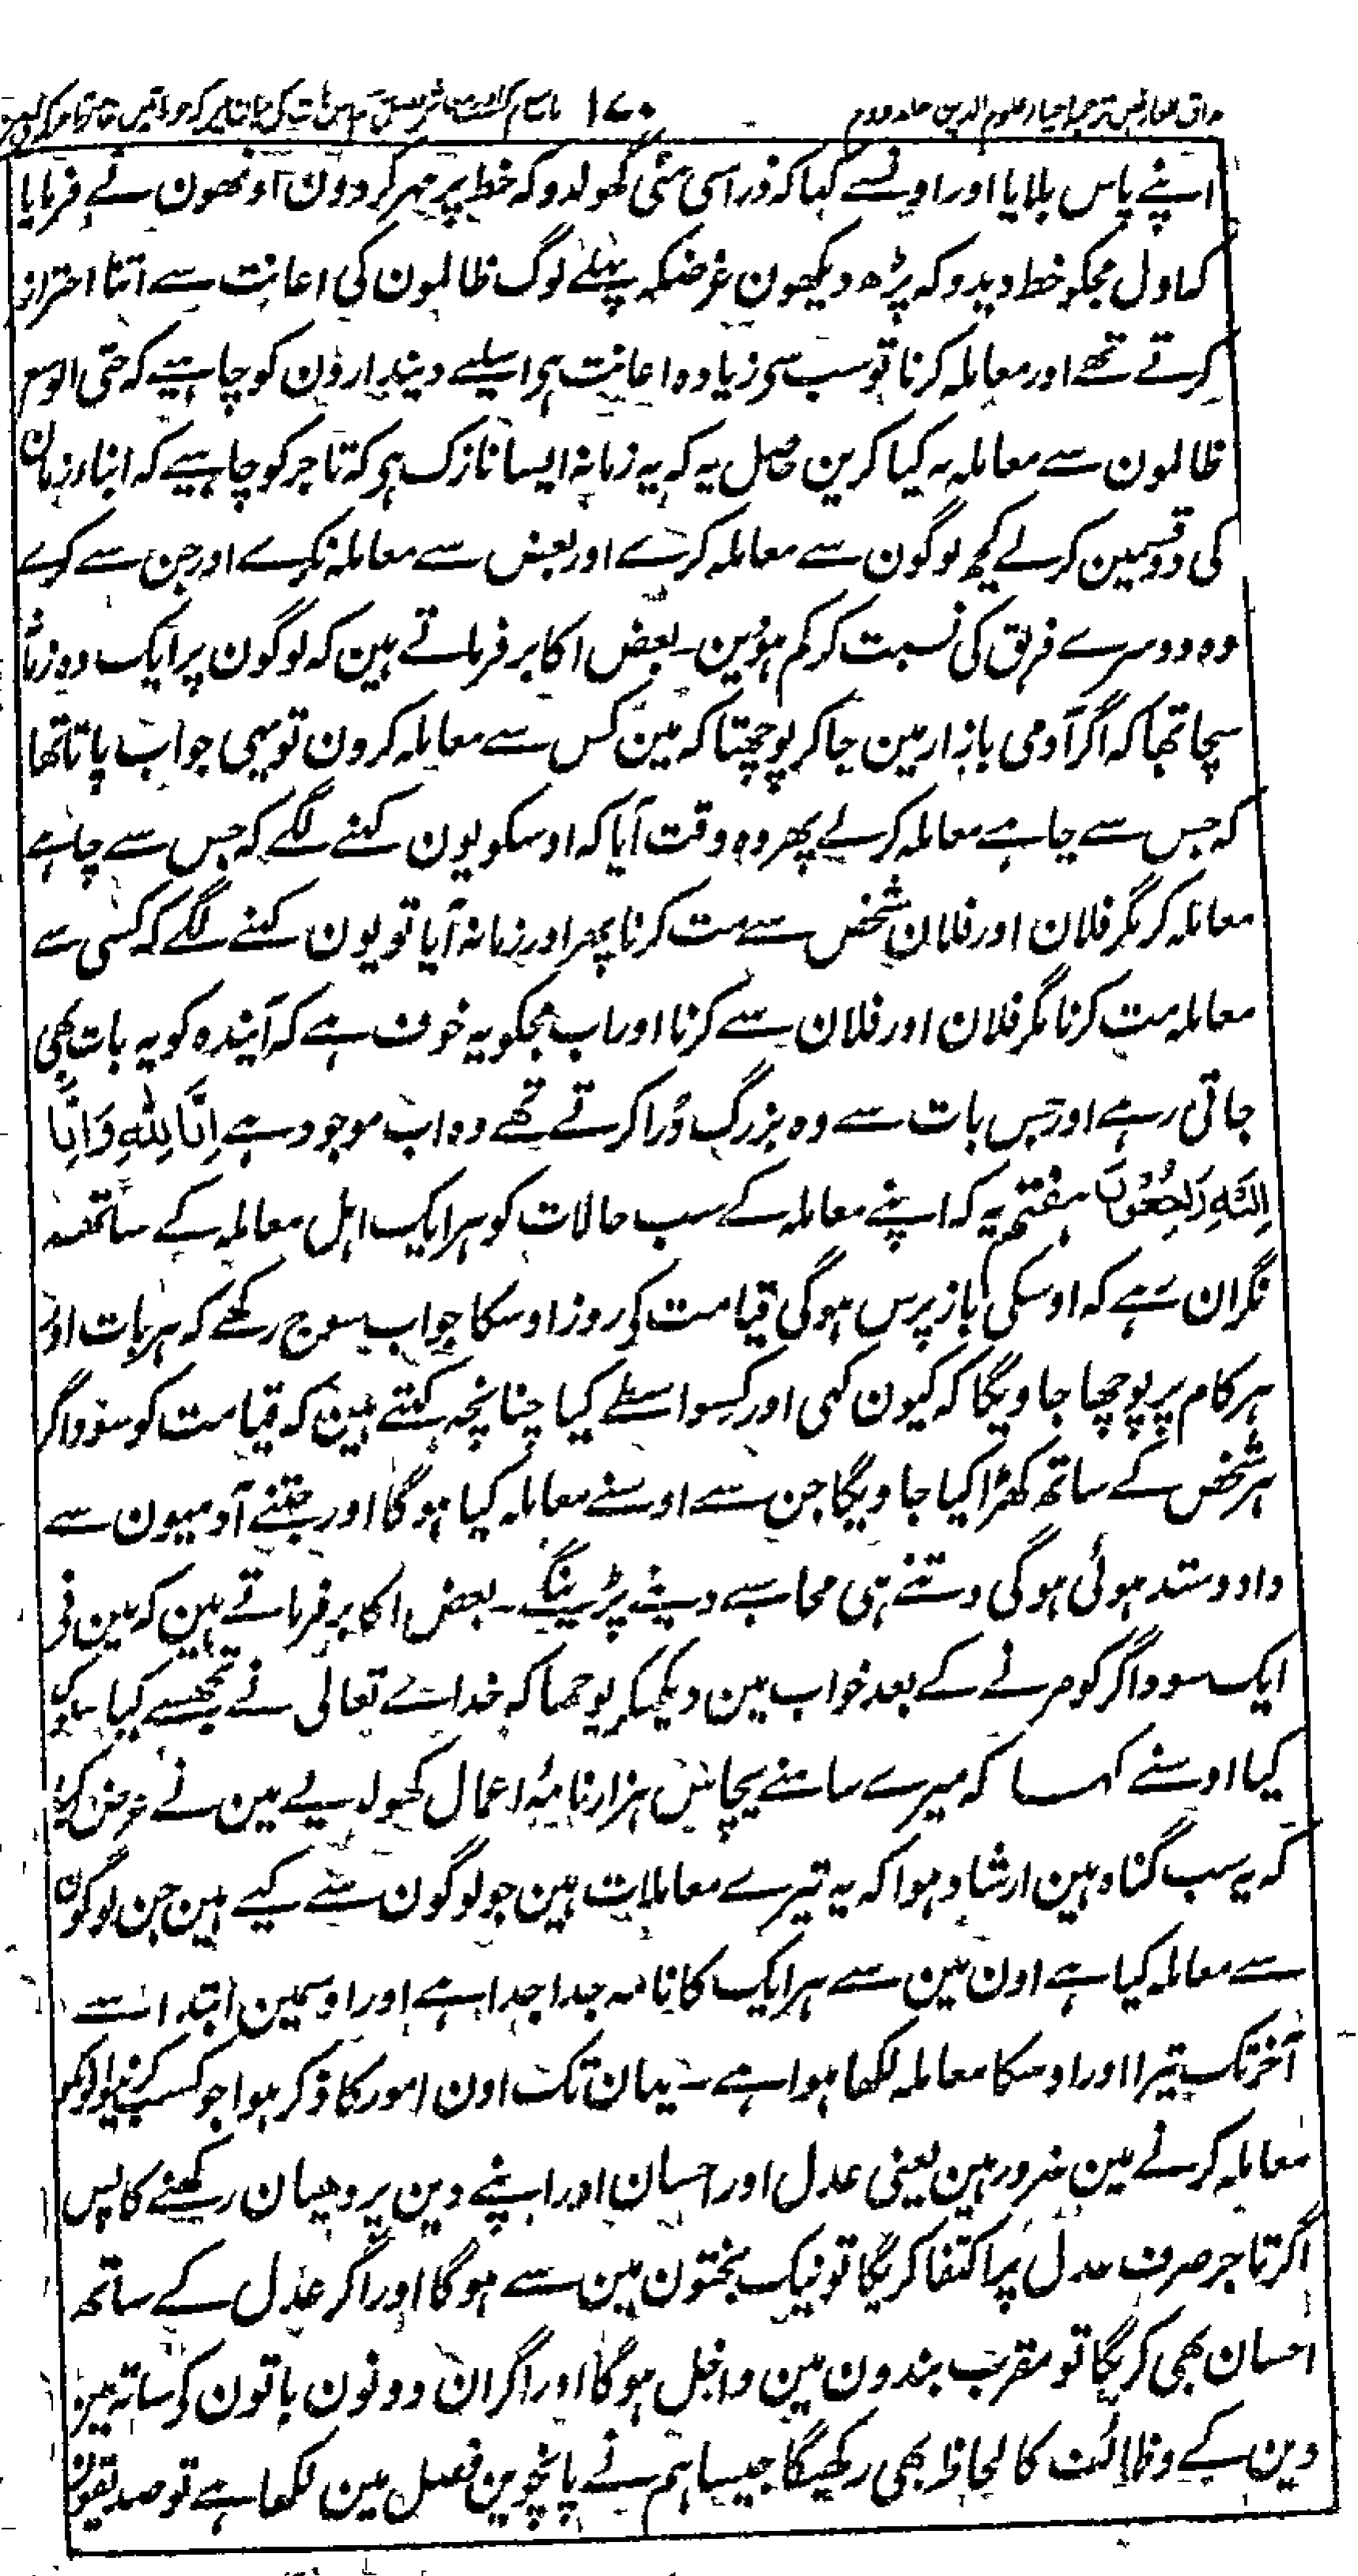 مذاق العارفین ترجمہ احیاء علوم الدین جلد دوم ۱۷۰
اپنے پاس بلایا اور اونسے کہا کہ ذرا سی مٹی گھولدو کہ خط پر مہر کر دون اونھون نے فرمایا
کہ اول مجکو خط دیدو کہ پڑھ دیکھون غرضکہ پہلے لوگ ظالمون کی اعانت سے اتنا احتراز
کرتے تھے اور معاملہ کرنا تو سب سی زیادہ اعانت ہی اسلیے دیندارون کو چاہیے کہ حتی الوسع
ظالمون سے معاملہ نہ کیا کرین حاصل یہ کہ یہ زمانہ ایسا نازک ہی کہ تاجر کو چاہیے کہ ابناء زمان
کی دو قسمین کرلے کچھ لوگون سے معاملہ کرے اور بعض سے معاملہ نکرے اور جن سے کرے
وہ دوسرے فریق کی نسبت کر کم ہوئین۔ بعض اکابر فرماتے ہین کہ لوگون پر ایک وہ زمانہ
سچا تھا کہ اگر آدمی بازار مین جا کر پوچھتا کہ مین کس سے معاملہ کرون تو یہی جواب پاتا تھا
کہ جس سے چاہے معاملہ کرلے پھر وہ وقت آیا کہ اوسکو یون کہنے لگے کہ جس سے چاہے
معاملہ کر مگر فلان اور فلان شخص سے مت کرنا پھر اور زمانہ آیا تو یون کہنے لگے کہ کسی سے
معاملہ مت کرنا مگر فلان اور فلان سے کرنا اور اب مجکو یہ خوف ہے کہ آیندہ کو یہ بات بھی
جاتی رہے اور جس بات سے وہ بزرگ ڈرا کرتے تھے وہ اب موجود ہے اِنَّا لِلّٰهِ وَاِنَّا
اِلَيْهِ رَاجِعُوْنَ ہفتم یہ کہ اپنے معاملہ کے سب حالات کو ہر ایک اہل معاملہ کے ساتھ
نگران رہے کہ اوسکی بازپرس ہوگی قیامت کی روز اوسکا جواب سوچ رکھے کہ ہر بات اور
ہر کام پر پوچھا جاویگا کہ کیون کہی اور کسواسطے کیا چنانچہ کہتے ہین کہ قیامت کو سوداگر
ہر شخص کے ساتھ کھڑا کیا جاویگا جن سے اوسنے معاملہ کیا ہوگا اور جتنے آدمیون سے
داد وستد ہوئی ہوگی وتنے ہی محاسبے دینے پڑینگے۔ بعض اکابر فرماتے ہین کہ مین نی
ایک سوداگر کو مرنے کے بعد خواب مین دیکھکر پوچھا کہ خداے تعالی نے تجھسے کیا
کیا اوسنے کہا کہ میرے سامنے پچاس ہزار نامۂ اعمال کھولدیے مین نے عرض کیا
کہ یہ سب گناہ ہین ارشاد ہوا کہ یہ تیرے معاملات ہین جو لوگون سے کیے ہین جن لوگون
سے معاملہ کیا ہے اون مین سے ہر ایک کا نامہ جدا جدا ہے اور اوسمین ابتدا سے
آخر تک تیرا اور اوسکا معاملہ لکھا ہوا ہے۔ یہان تک اون امور کا ذکر ہوا جو کسب کرنیوالیکو
معاملہ کرنے مین ضرور ہین یعنی عدل اور احسان اور اپنے دین پر دھیان رکھنے کا پس
اگر تاجر صرف عدل پر اکتفا کریگا تو نیک بختون مین سے ہوگا اور اگر عدل کے ساتھ
احسان بھی کریگا تو مقرب بندون مین داخل ہوگا اور اگر ان دونون باتون کو ساتھ مین
دین کے وظائف کا لحاظ بھی رکھیگا جیسا ہم نے پانچوین فصل مین لکھا ہے تو صدیقون